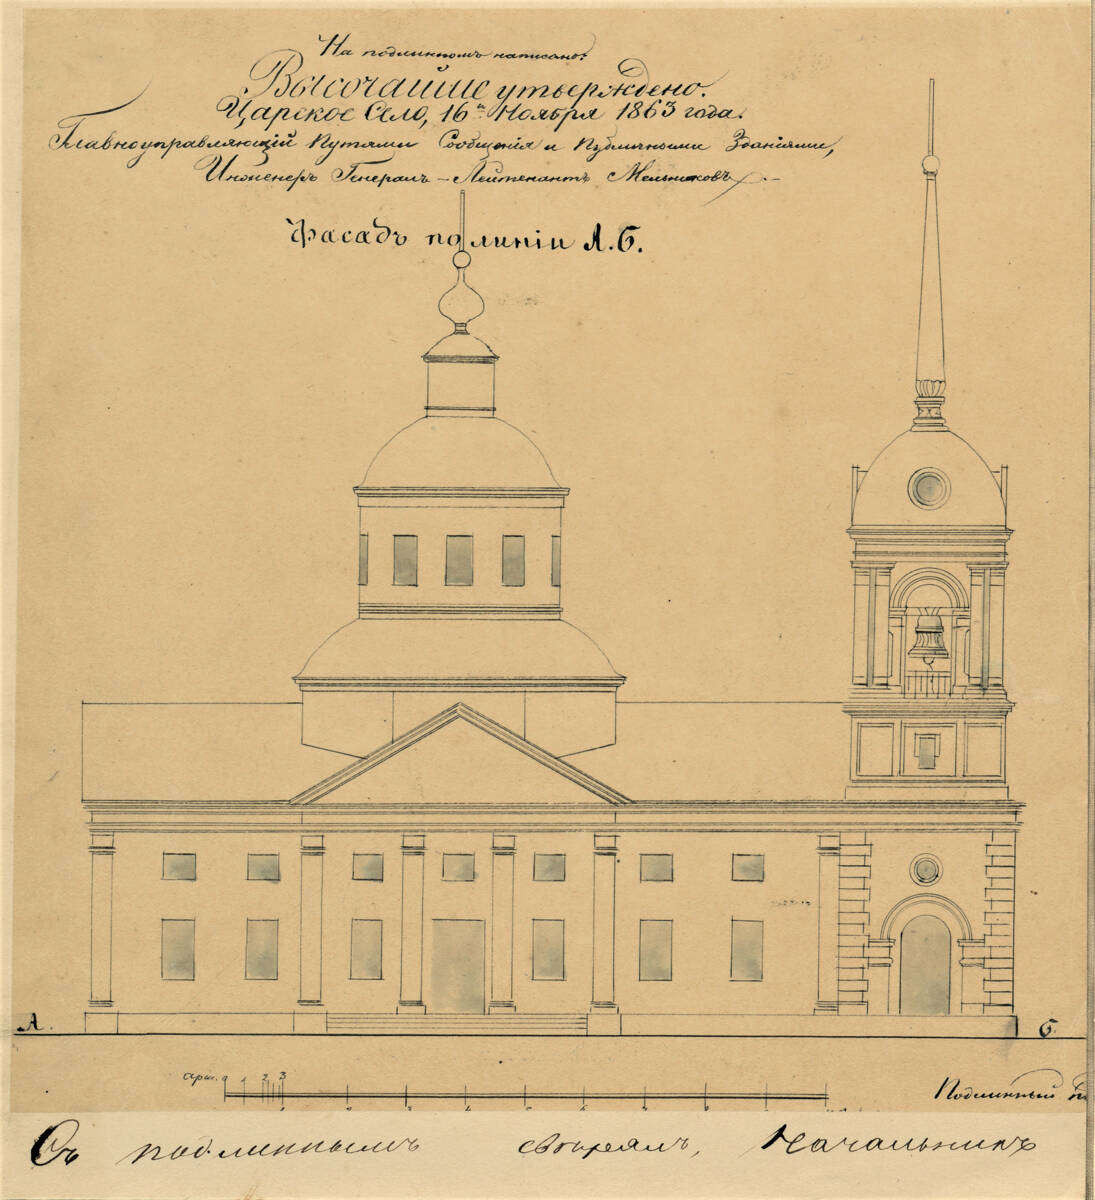 На подлинномъ написано:
Высочайше утверждено.
Царское Село, 16го Ноября 1863 года.
Главноуправляющій Путями Сообщенія и Публичными Зданіями,
Инженеръ Генералъ-Лейтенантъ Мельниковъ
Фасадъ по линіи А. Б.
А. Б.
Арш. 0 1 2 3
1 2 3 4 5 6 7 8 9
Подлинный
Съ подлиннымъ свѣрялъ, Начальникъ